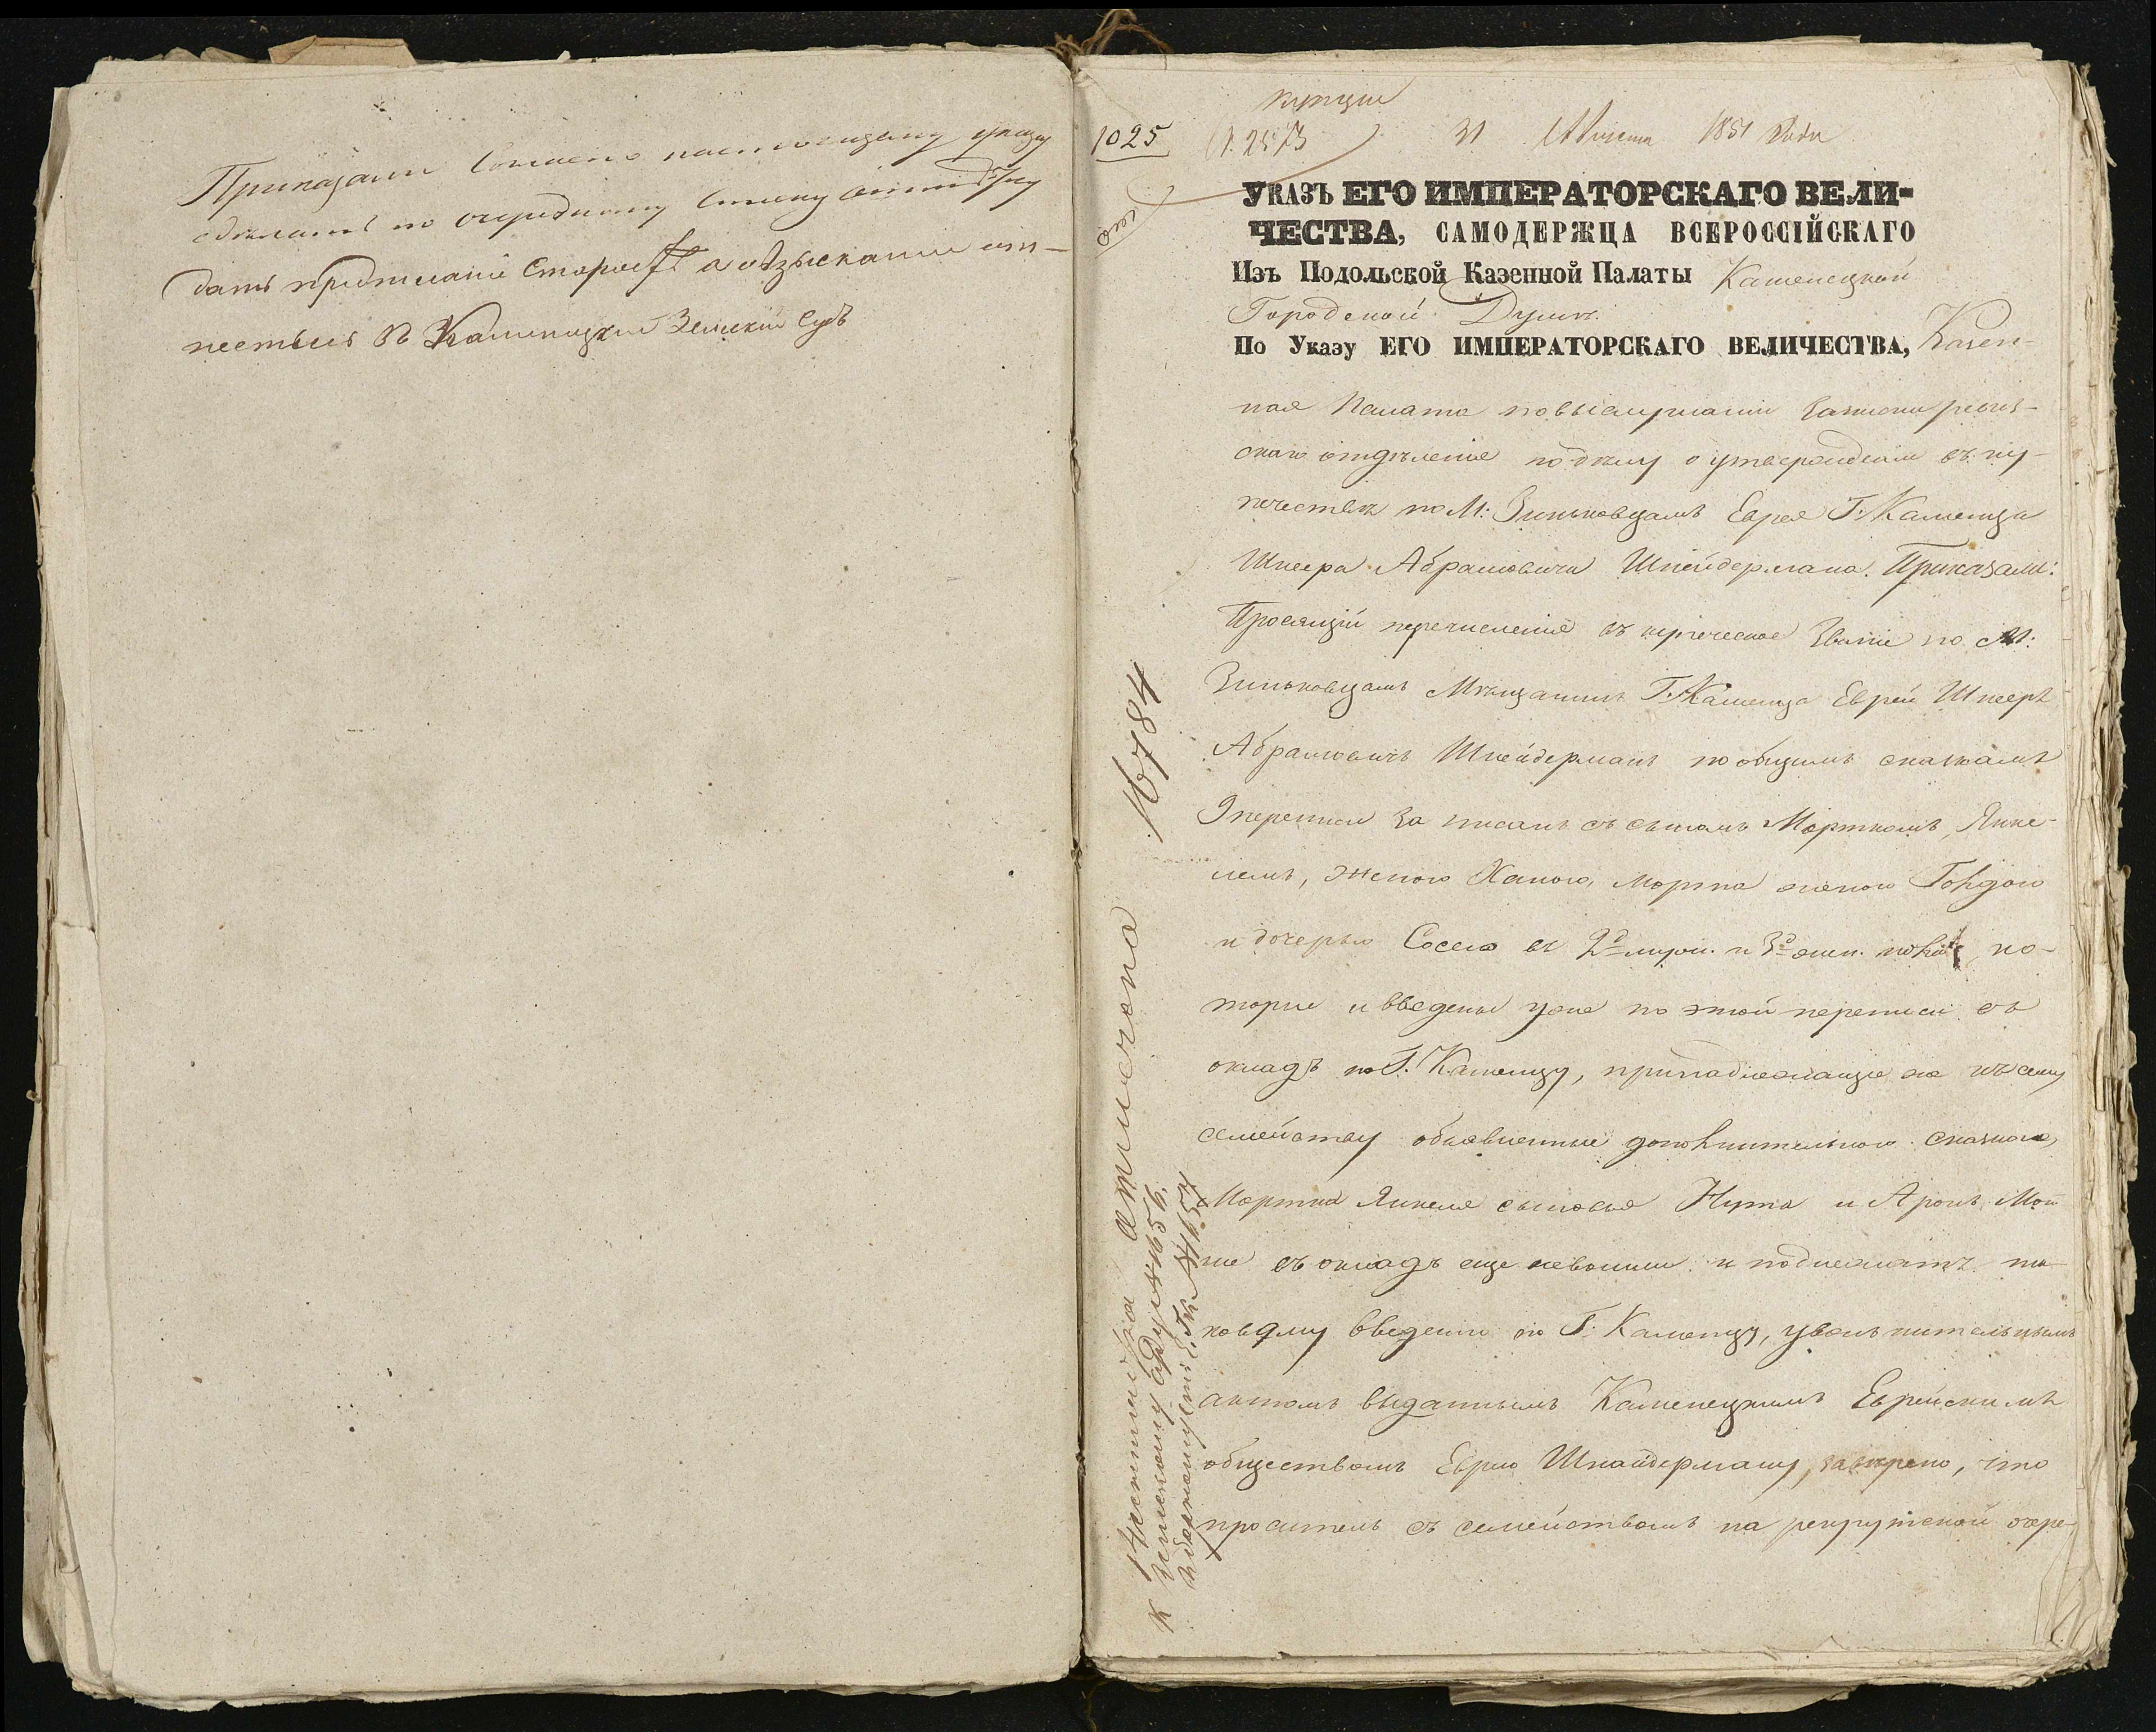 Приказали Согласно настоящему указу
сделать по очередному списку
дать предписание Старосте а о взыскании
в Каменецкий Земский Судъ
купцы
1025
№ 2573
31 Августа 1851 года
УКАЗЪ ЕГО ИМПЕРАТОРСКАГО ВЕЛИ-
ЧЕСТВА, САМОДЕРЖЦА ВСЕРОССІЙСКАГО
Изъ Подольской Казенной Палаты Каменецкой
Городской Думѣ.
По Указу ЕГО ИМПЕРАТОРСКАГО ВЕЛИЧЕСТВА, Казен-
ная Палата по выслушаніи записки ревиз-
скаго отдѣленія по дѣлу о утвержденіи въ ку-
печествѣ по М: Зиньковцамъ Еврея Г. Каменца
Шнеера Абрамовича Шнейдермана. Приказали:
Просящій перечисленія въ купеческое званіе по М:
Зиньковцамъ Мѣщанинъ Г. Каменца Еврей Шнееръ
Абрамовичъ Шнейдерманъ по общимъ сказкамъ
9 переписи записанъ съ сыномъ Морткомъ, Янке-
лемъ, женою Ханою, Мортка женою Гольдою
и дочерью Сосею въ 2д муж. и 3д жен. пола, ко-
торые и введены уже по этой переписи въ
окладъ по Г. Каменцу, принадлежащіе же къ сему
семейству объявленные дополнительною сказкою,
Мортка Янкеля сыновья Нута и Аронъ Мой
ше въ окладъ еще не вошли и подлежатъ та-
ковому введенію по Г. Каменцу, увольнительнымъ
актомъ выданнымъ Каменецкимъ Еврейскимъ
обществомъ Еврею Шнайдерману, завѣрено, что
проситель съ семействомъ на рекрутской очере-
16784
отмечено